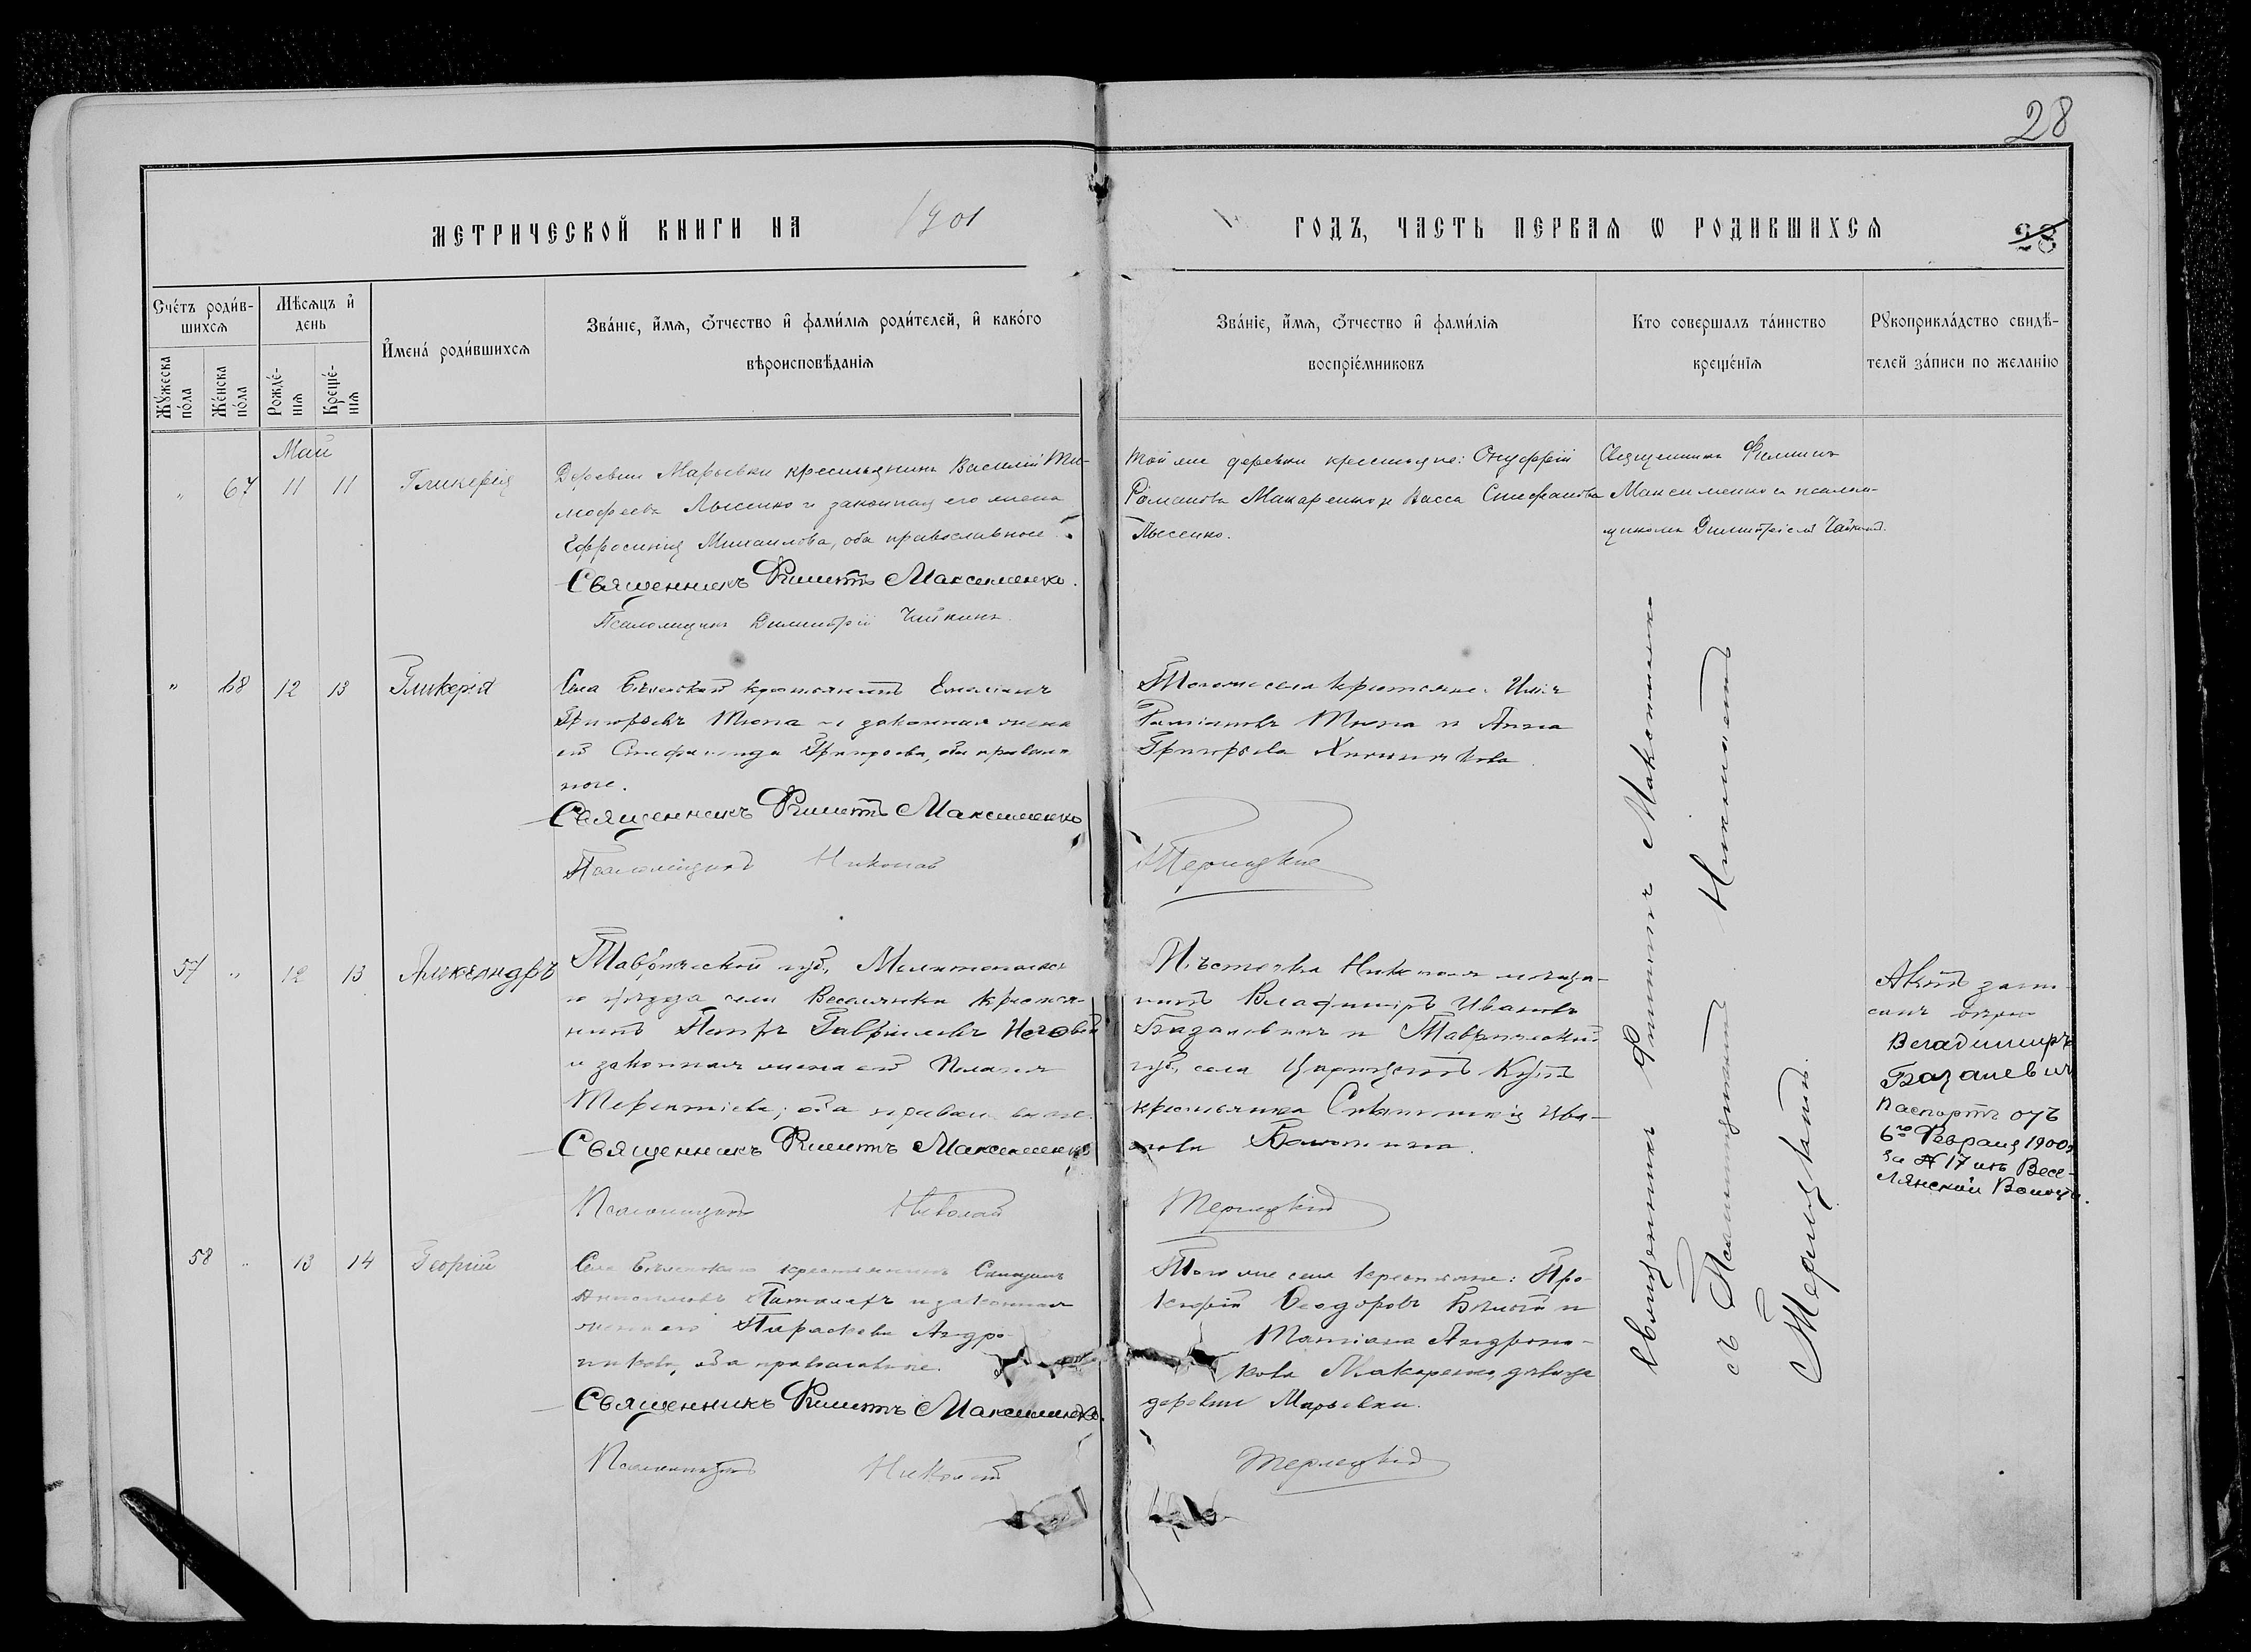 28
МЕТРИЧЕСКОЙ КНИГИ НА 1901
ГОДЪ, ЧАСТЬ ПЕРВАЯ Ѡ РОДИВШИХСЯ 28
Счетъ родив-
шихся
Мужеска
пола
Женска
пола
Мѣсяцъ и
день
Рожде-
нія
Креще-
нія
Имена родившихся
Званіе, имя, отчество и фамилія родителей, и какого
вѣроисповѣданія
Званіе, имя, отчество и фамилія
воспріемниковъ
Кто совершалъ таинство
крещенія
Рукоприкладство свидѣ-
телей записи по желанію
Май
" 67 11 11 Гликерія
Деревни Марьевки крестьянинъ Василій Ти-
мофеевъ Лысенко и законная его жена
Ефросинія Михаилова, оба православные.
Священникъ Филиппъ Максименко.
Псаломщикъ Димитрій Чайкинъ.
Той же деревни крестьяне: Онуфрій
Романовъ Макаренко и Васса Стефанова
Лысенко.
Священникъ Филиппъ
Максименко съ псалом-
щикомъ Димитріемъ Чайкинъ.
" 68 12 13 Гликерія
Села крестьянинъ Емеліанъ
Григорьевъ Тюпа и законная жена
его Григорьева, оба православ
ные.
Священникъ Филиппъ Максименко
Псаломщикъ Николай
Того же села крестьяне: Илія
Тюпа и Анна
Григорьева
Терлецкій
57 " 12 13 Александръ
Таврической губ., Мелитопольск
о уѣзда села Веселянки крестья-
нинъ Петръ Гавриловъ
и законная жена его Пелагія
Терентіева; оба православные.
Священникъ Филиппъ Максименко
Псаломщикъ Николай
Мѣстечка Никополя мѣща-
нинъ Владиміръ Ивановъ
Базалевичъ и Таврической
губ. села Царицынъ Кутъ
крестьянка Ива-
нова
Терлецкій
Актъ запи-
санъ вѣрно
Владимиръ
Базалевич
Паспортъ отъ
6го Февраля 1900
за № 17 изъ Весе-
лянской Волости.
58 " 13 14 Георгій
Села крестьянинъ
и законная
жена его Параскева Андро-
никова, оба православные.
Священникъ Филиппъ Максименко.
Псаломщикъ Николай
Того же села крестьяне: Про-
кофій Феодоровъ и
Татіана Андрони-
кова Макаренко, дѣвица
деревни Марьевки.
Терлецкій
Священникъ Филиппъ Максименко
съ Псаломщикомъ Николаемъ
Терлецкимъ.